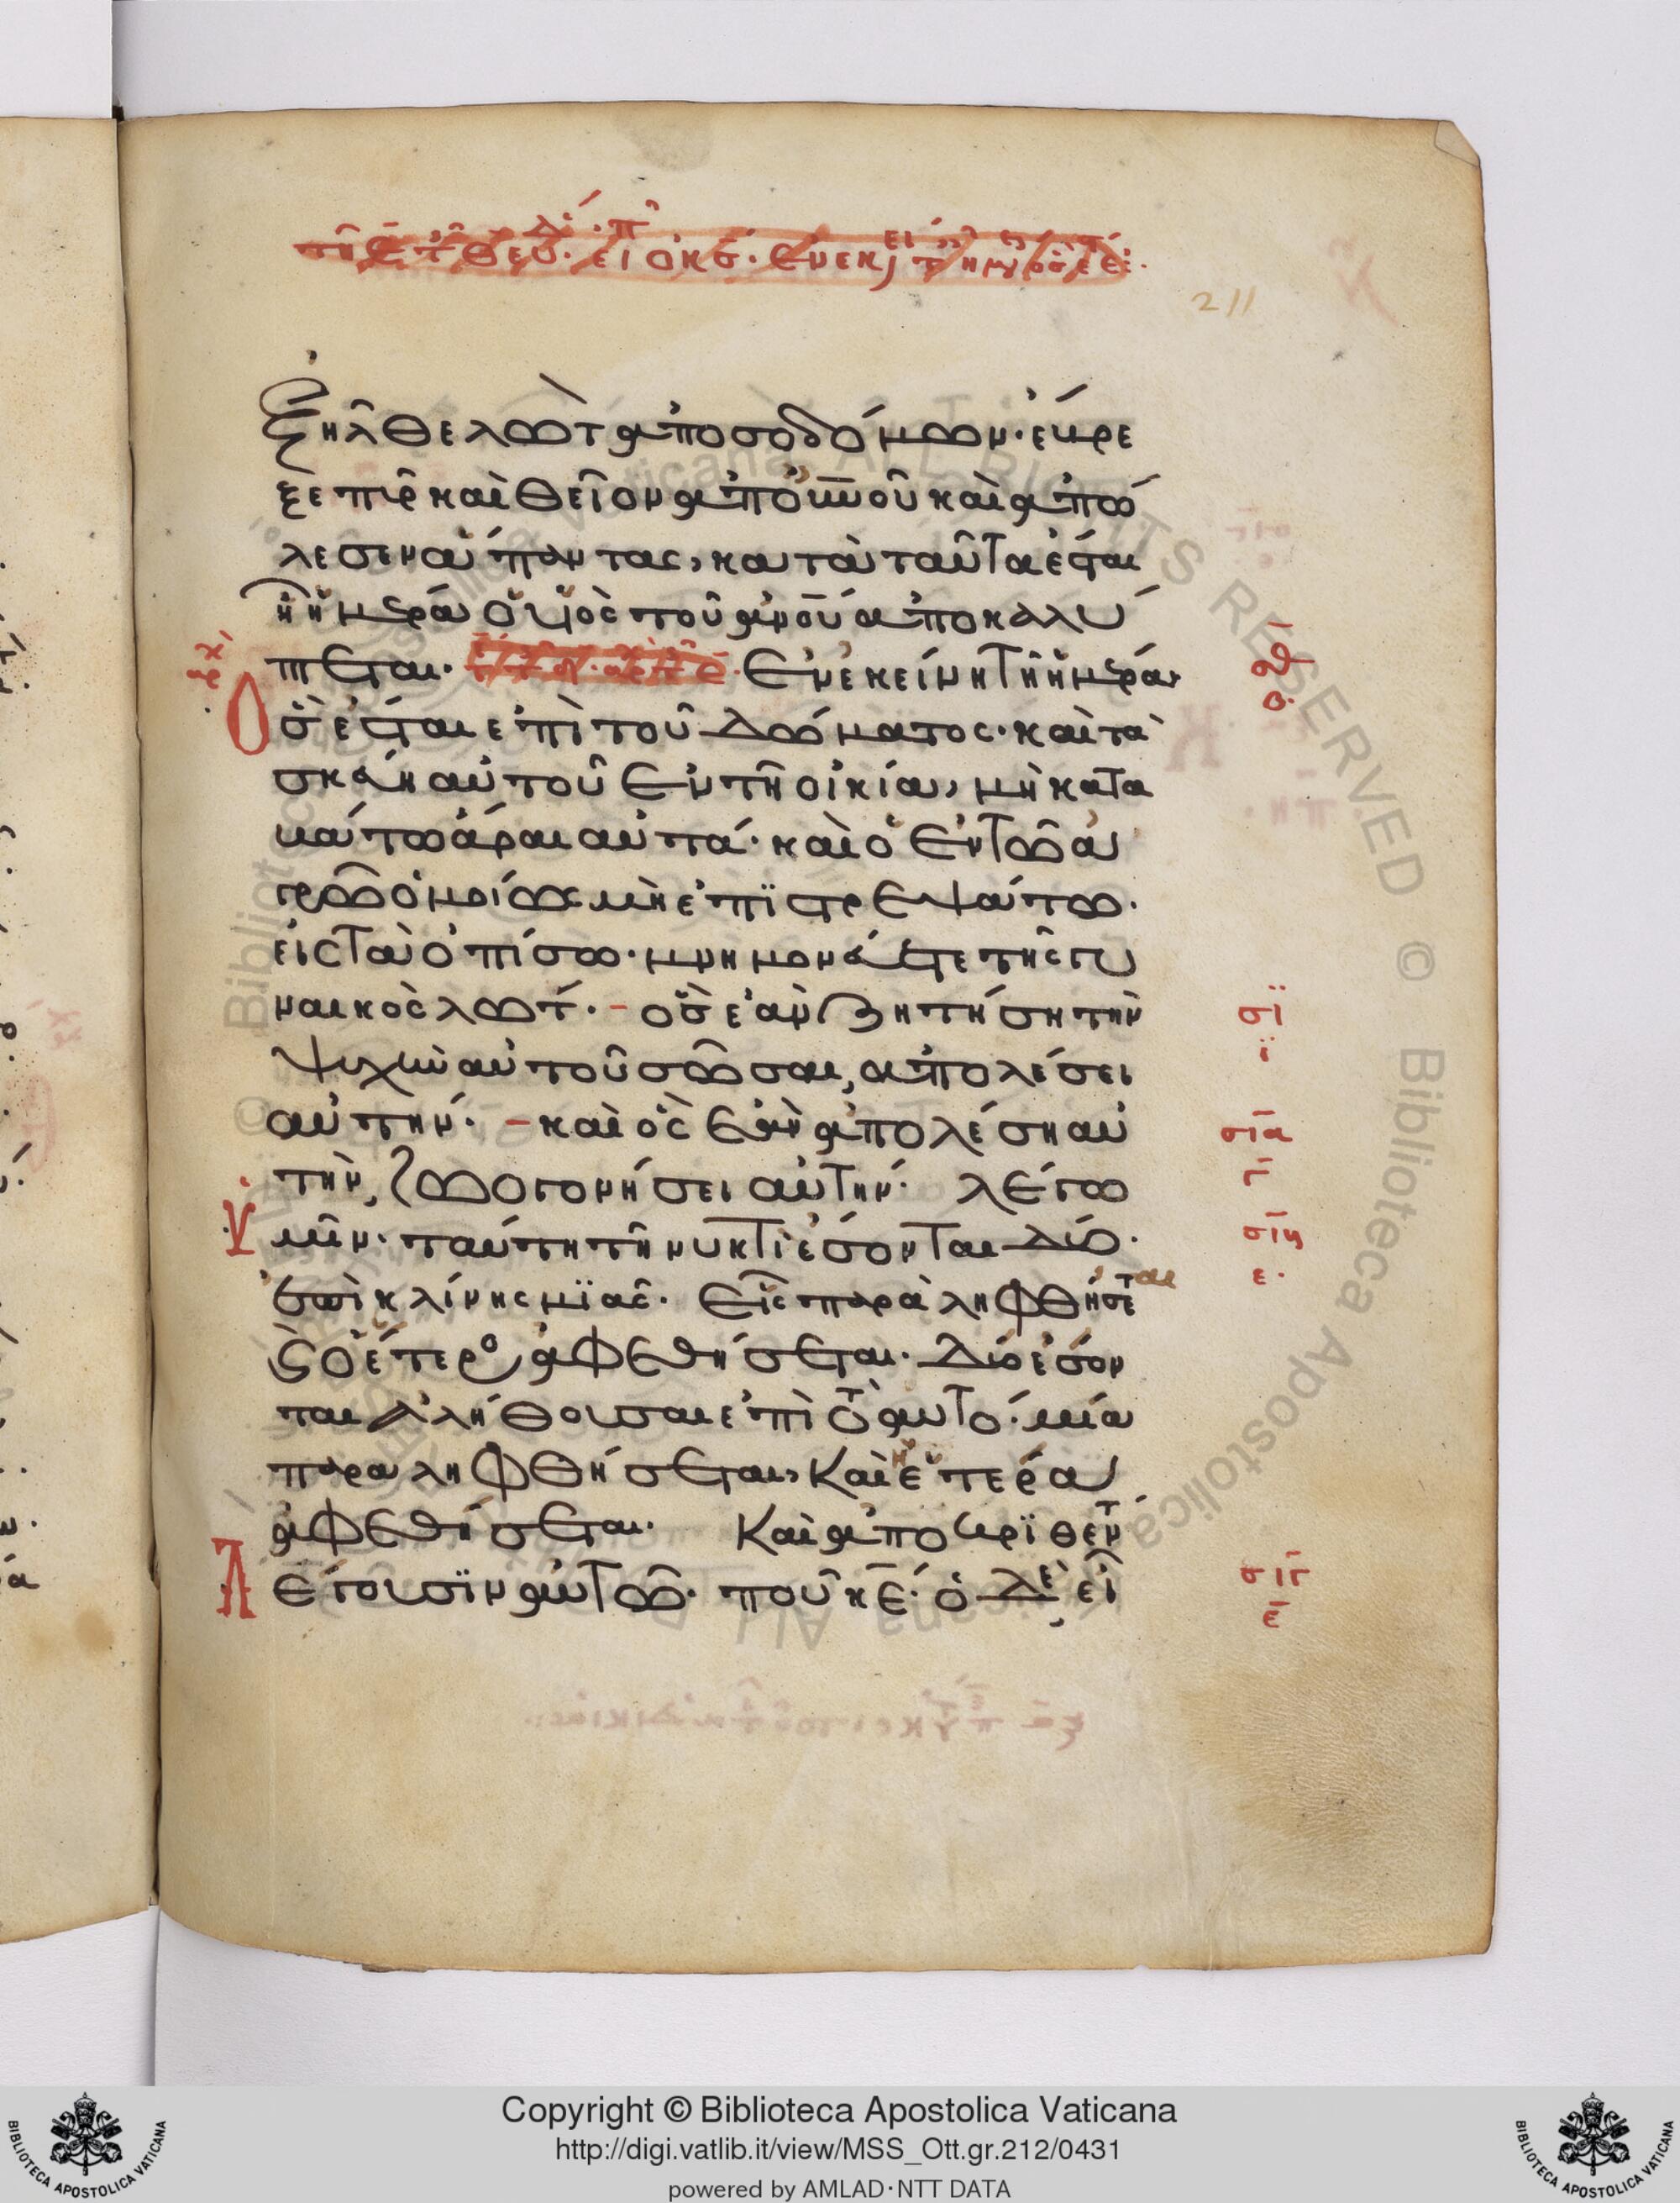 211
ξῆλθε λὼτ ἀπὸ σοδόμων· ἔυρε
ξε πῦρ καὶ θεῖον ἀπὸ οὐνοῦ καὶ ἀπώ
λεσεν ἅπαντας, κατὰ ταῦτα ἔσται
ἧ ἡμέρα ὁ υἱὸς τοῦ ἀνου ἀποκαλύ
πτεται· Ἐν ἐκείνη τῆ ἡμέρα
ὃς ἔσται ἐπὶ τοῦ δώματος· καὶ τὰ
σκεύη αὐτοῦ ἐν τῆ οἰκία, μὴ κατα
βάτω ἆραι αὐτά· καὶ ὁ ἐν τῶ ἀ
γρῶ ὁμοίως μὴ ἐπϊστρεψάτω·
εἰς τὰ ὀπίσω· μνημονεύετε τῆς γυ
ναικὸς λώτ· - ὃς ἐὰν ζητήση τὴν
ψυχὴν αὐτοῦ σῶσαι, ἀπολέσει
αὐτήν· - καὶ ὃς ἐὰν ἀπολέση αὐ
τὴν, ζωογονήσει αὐτήν· λέγω
μῖν· ταύτη τῆ νυκτὶ ἔσονται δύο·
ἐπὶ κλίνης μϊᾶς· εἷς παραληφθήσεται
καὶ ὁ ἕτερος ἀφεθήσεται· δύο ἔσον
ται ἀλήθουσαι ἐπὶ τὸ αὐτό· μία
παραληφθήσεται, καὶ ἡ ἑτέρα
ἀφεθήσεται· Καὶ ἀποκρϊθέντ
έγουσϊν αὐτῶ· ποῦ κε· ὁ δὲ εἶ
σϊ
ϊ
σια
γ
σιβ
ε·
σιγ
ε
Copyright © Biblioteca Apostolica Vaticana
http://digi.vatlib.it/view/MSS_Ott.gr.212/0431
powered by AMLAD·NTT DATA
BIBLIOTECA APOSTOLICA VATICANA
BIBLIOTECA APOSTOLICA VATICANA